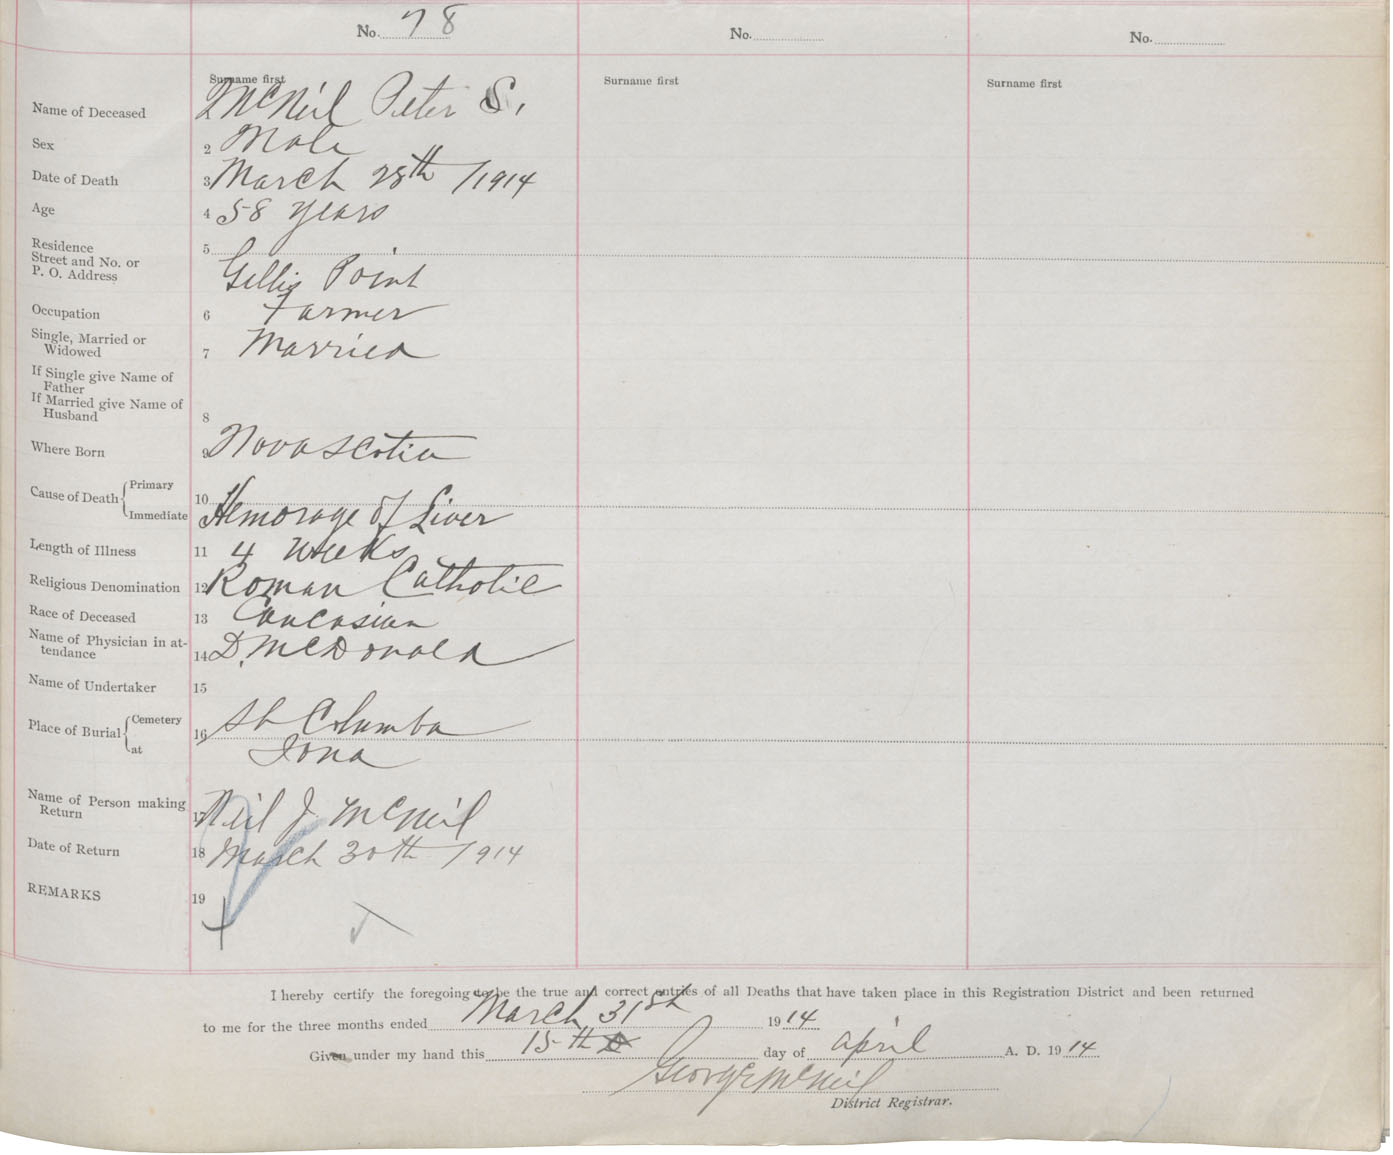 No. 78
No.
No.
Surname first
Surname first
Surname first
Name of Deceased 1 McNeil Peter S.
Sex 2 Male
Date of Death 3 March 28th /1914
Age 4 58 years
Residence
Street and No. or
P. O. Address
5 Gillis Point
Occupation 6 Farmer
Single, Married or
Widowed
7 Married
If Single give Name of
Father
If Married give Name of
Husband
8
Where Born 9 Nova Scotia
Cause of Death { Primary
Immediate
10 Hemorage of Liver
Length of Illness 11 4 weeks
Religious Denomination 12 Roman Catholic
Race of Deceased 13 Caucasian
Name of Physician in at-
tendance
14 D. McDonald
Name of Undertaker 15
Place of Burial { Cemetery
at
16 St Columba
Iona
Name of Person making
Return
17 Neil J. McNeil
Date of Return 18 March 30th /914
REMARKS 19
I hereby certify the foregoing to be the true and correct entries of all Deaths that have taken place in this Registration District and been returned
to me for the three months ended March 31st 1914
Given under my hand this 15th day of april A. D. 1914
George McNeil
District Registrar.